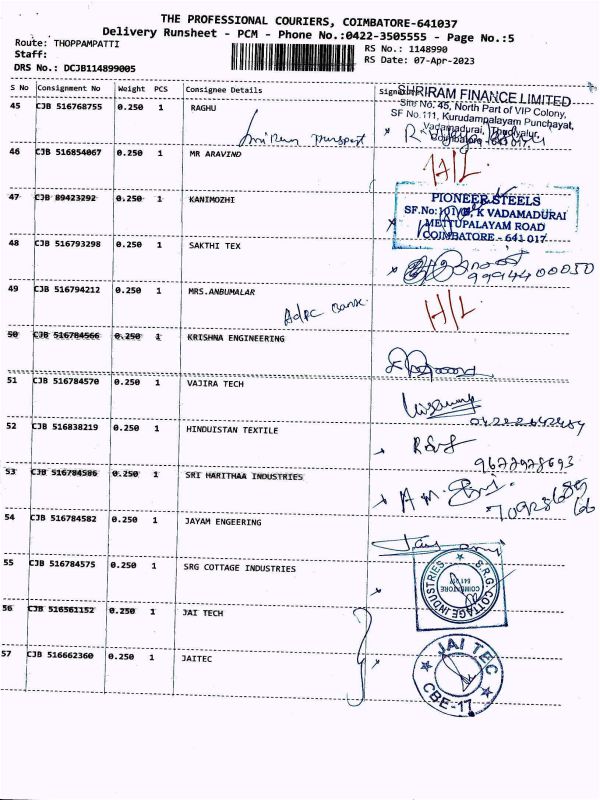 THE PROFESSIONAL COURIERS, COIMBATORE-641037
Delivery Runsheet - PCM - Phone No.:0422-3505555 - Page No.:5
Route: THOPPAMPATTI
RS No.: 1148990
Staff:
RS Date: 07-Apr-2023
DRS No.: DCJB114899005
S No Consignment No Weight PCS Consignee Details
45 CJB 516768755 0.250 1 RAGHU
SHRIRAM FINANCE LIMITED
Site No. 45, North Part of VIP Colony,
SF No.111, Kurudampalayam Punchayat,
Vadamadurai, Thudiyalur,
Coimbatore - 641 017.
46 CJB 516854067 0.250 1 MR ARAVIND
H/L
47 CJB 89423292 0.250 1 KANIMOZHI
PIONEER STEELS
K VADAMADURAI
METTUPALAYAM ROAD
COIMBATORE - 641 017
48 CJB 516793298 0.250 1 SAKTHI TEX
9994400050
49 CJB 516794212 0.250 1 MRS.ANBUMALAR
H/L
50 CJB 516784566 0.250 1 KRISHNA ENGINEERING
51 CJB 516784570 0.250 1 VAJIRA TECH
52 CJB 516838219 0.250 1 HINDUISTAN TEXTILE
53 CJB 516784586 0.250 1 SRI HARITHAA INDUSTRIES
54 CJB 516784582 0.250 1 JAYAM ENGEERING
55 CJB 516784575 0.250 1 SRG COTTAGE INDUSTRIES
S.R.G. COTTAGE INDUSTRIES
COIMBATORE
56 CJB 516561152 0.250 1 JAI TECH
57 CJB 516662360 0.250 1 JAITEC
JAI TEC
CBE-17